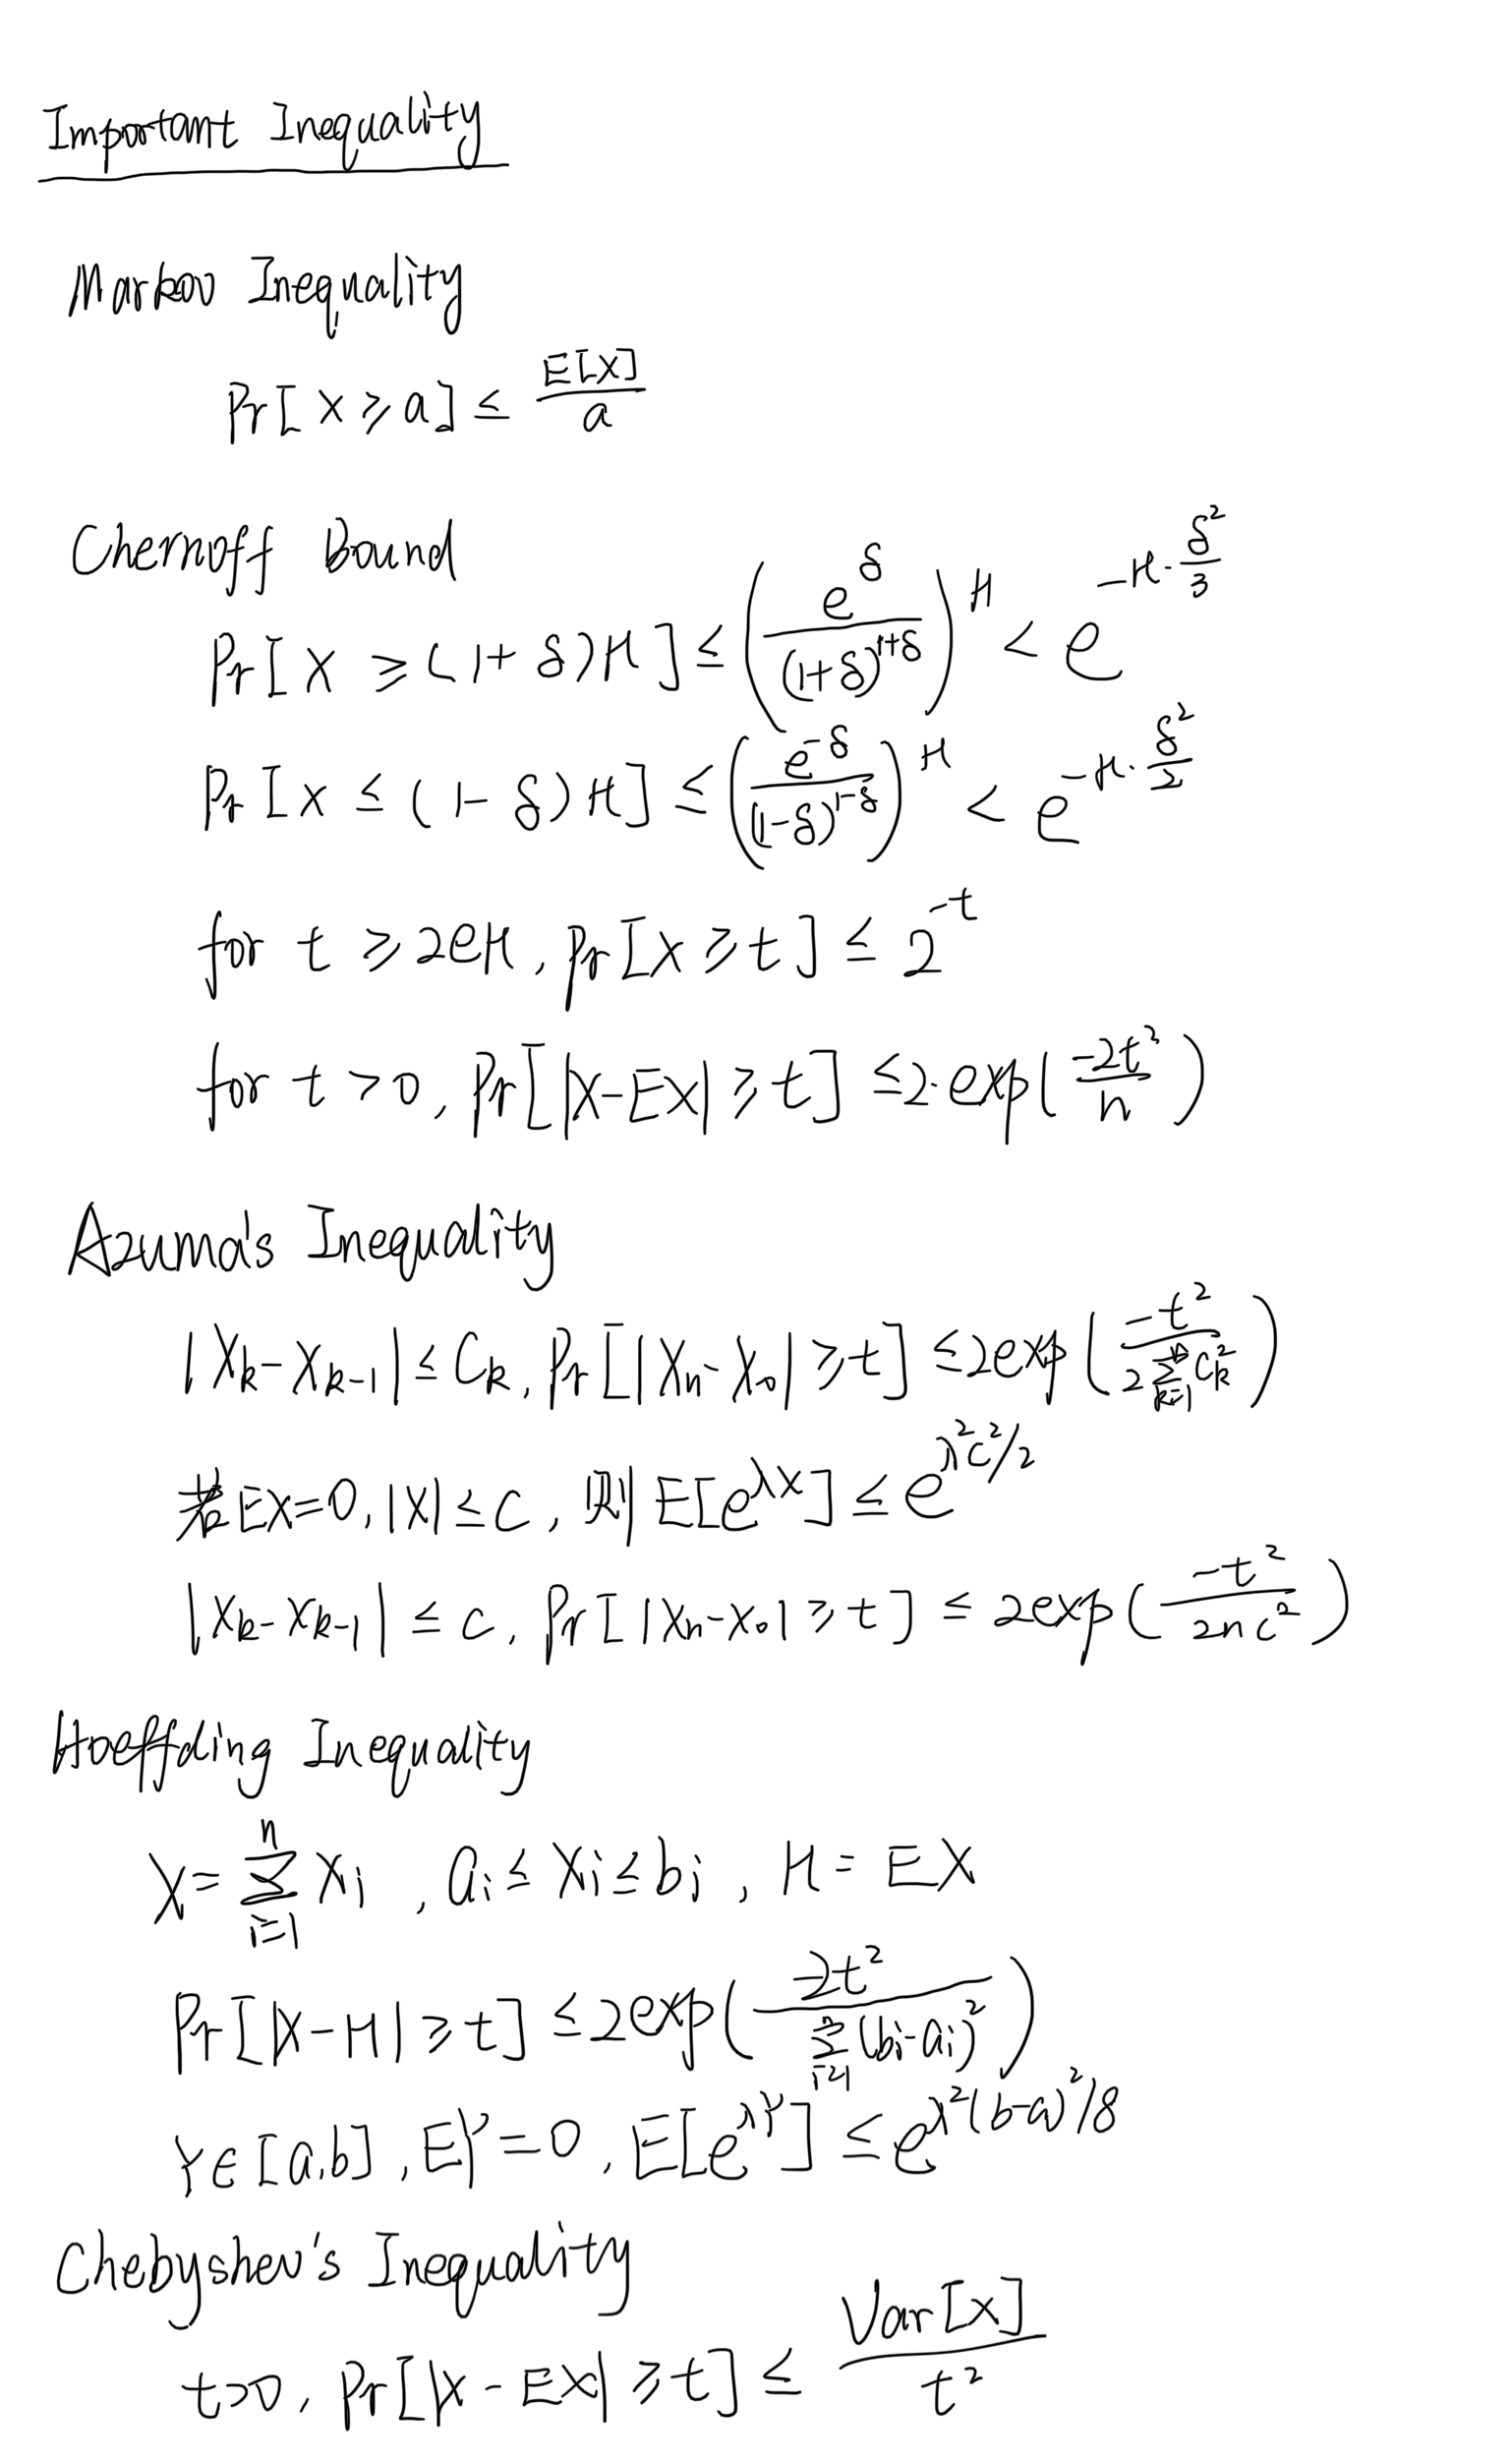 Important Inequality
Markov Inequality
Pr[X ≥ a] ≤ E[X]/a
Chernoff Bound
Pr[X ≥ (1+δ)μ] ≤ (e^δ/(1+δ)^{1+δ})^μ < e^{-μ·δ²/3}
Pr[X ≤ (1-δ)μ] ≤ (e^{-δ}/(1-δ)^{1-δ})^μ < e^{-μ·δ²/2}
for t ≥ 2eμ, Pr[X ≥ t] ≤ 2^{-t}
for t > 0, Pr[|X-EX| ≥ t] ≤ 2·exp(-2t²/n)
Azuma's Inequality
|X_k - X_{k-1}| ≤ C_k, Pr[|X_n - X_0| ≥ t] ≤ 2exp(-t²/(2∑_{k=1}^n C_k²))
若EX=0, |X| ≤ C, 则E[e^{λX}] ≤ e^{λ²C²/2}
|X_k - X_{k-1}| ≤ C, Pr[|X_n - X_0| ≥ t] ≤ 2exp(-t²/(2nC²))
Hoeffding Inequality
X = ∑_{i=1}^n X_i, a_i ≤ X_i ≤ b_i, μ = EX
Pr[|X-μ| ≥ t] ≤ 2exp(-2t²/∑_{i=1}^n (b_i-a_i)²)
Y∈[a,b], EY=0, E[e^{λY}] ≤ e^{λ²(b-a)²/8}
Chebyshev's Inequality
t>0, Pr[|X-EX| ≥ t] ≤ Var[X]/t²